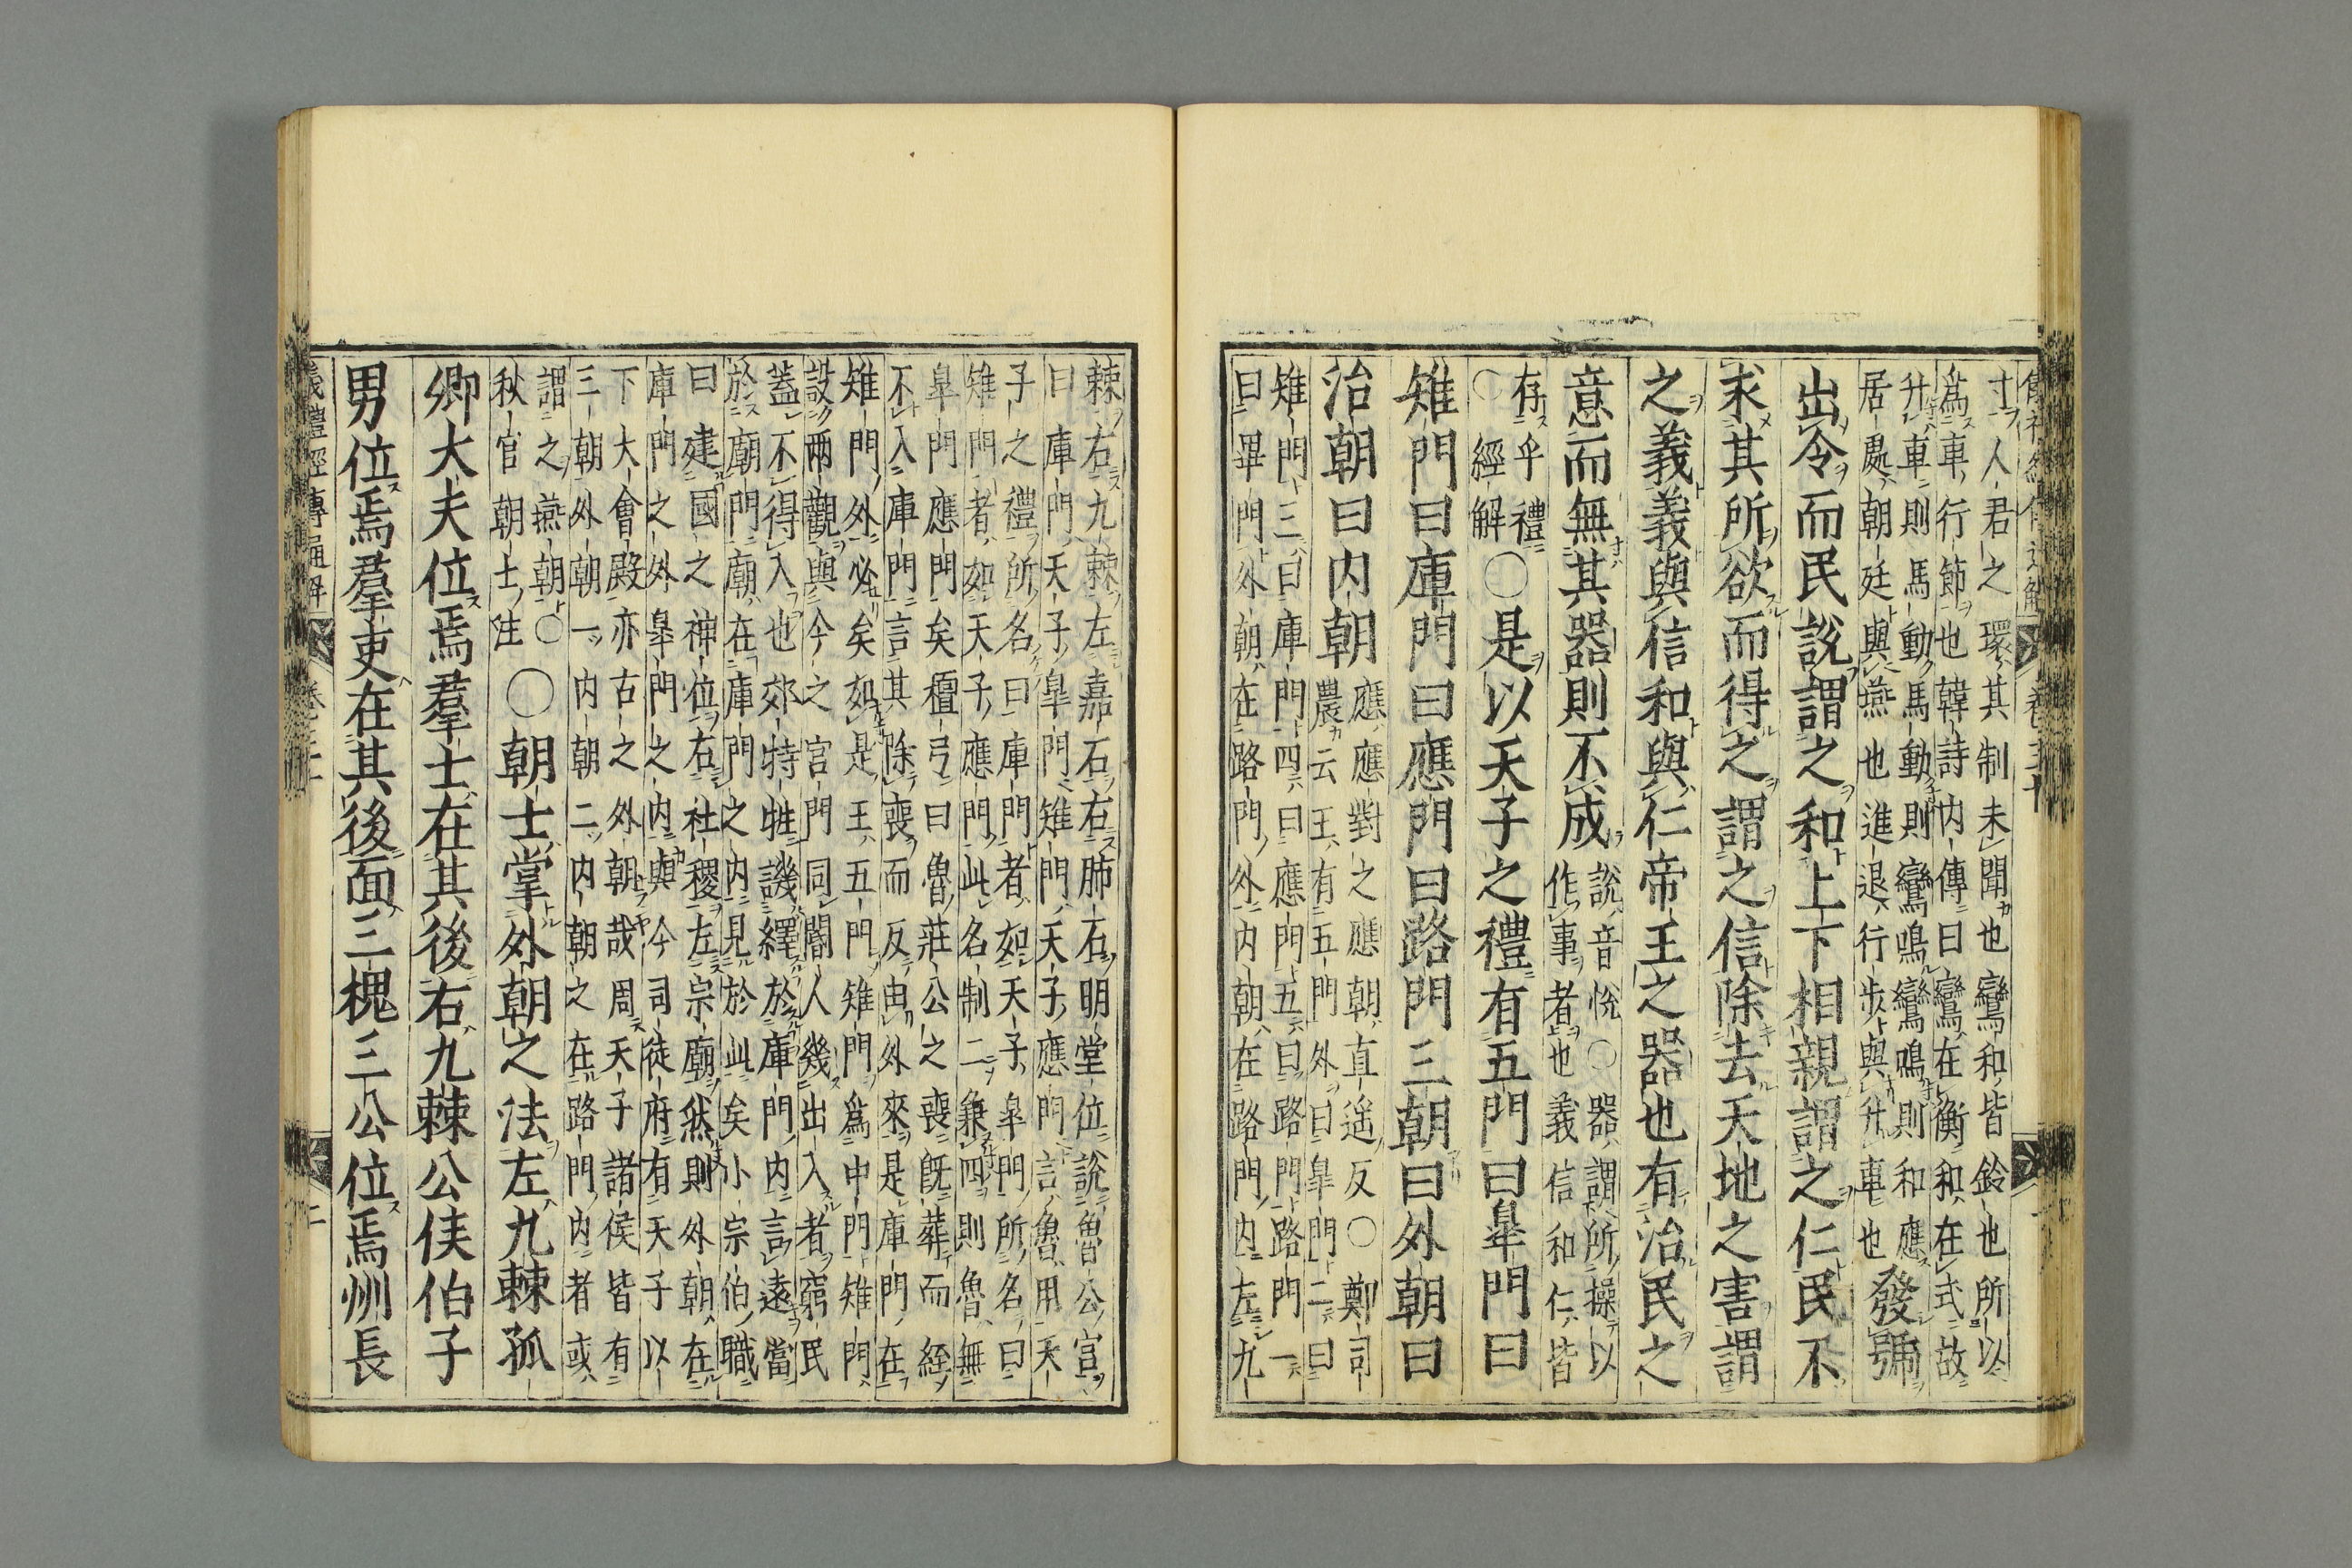 寸人君之環其制未聞也鸞和皆鈴也所以
爲車行節也韓詩内傳曰鸞在衡和在式故
升車則馬動馬動則鸞鳴鸞鳴則和應
居處朝廷與燕也進退行歩與升車也
發號
出令而民說謂之和上下相親謂之仁民不
求其所欲而得之謂之信除去天地之害謂
之義義與信和與仁帝王之器也有治民之
意而無其器則不成
說音悅○器謂所操以
作事者也義信和仁皆
存乎禮
○經解
○是以天子之禮有五門曰皐門曰
雉門曰庫門曰應門曰路門三朝曰外朝曰
治朝曰内朝
應應對之應朝直遙反○鄭司
農云王有五門外曰皐門二曰
雉門三曰庫門四曰應門五曰路門路門一
曰畢門外朝在路門外内朝在路門内左九
棘右九棘左嘉石右肺石明堂位說魯公宮
曰庫門天子皐門雉門天子應門言魯用天
子之禮所名曰庫門者如天子皐門所名曰
雉門者如天子應門此名制二兼四則魯無
皐門應門矣檀弓曰魯莊公之喪既葬而絰
不入庫門言其除喪而反由外來是庫門在
雉門外必矣如是王五門雉門爲中門雉門
設兩觀與今之宮門同閽人幾出入者窮民
蓋不得入也郊特牲譏繹於庫門内言遠當
於廟門廟在庫門之内見於此矣小宗伯職
曰建國之神位右社稷左宗廟然則外朝在
庫門之外皐門之内與今司徒府有天子以
下大會殿亦古之外朝哉周天子諸侯皆有
三朝外朝一内朝二内朝之在路門内者或
謂之燕朝○
秋官朝士注
○朝士掌外朝之法左九棘孤
卿大夫位焉羣士在其後右九棘公侯伯子
男位焉羣吏在其後面三槐三公位焉州長
儀禮經傳通解